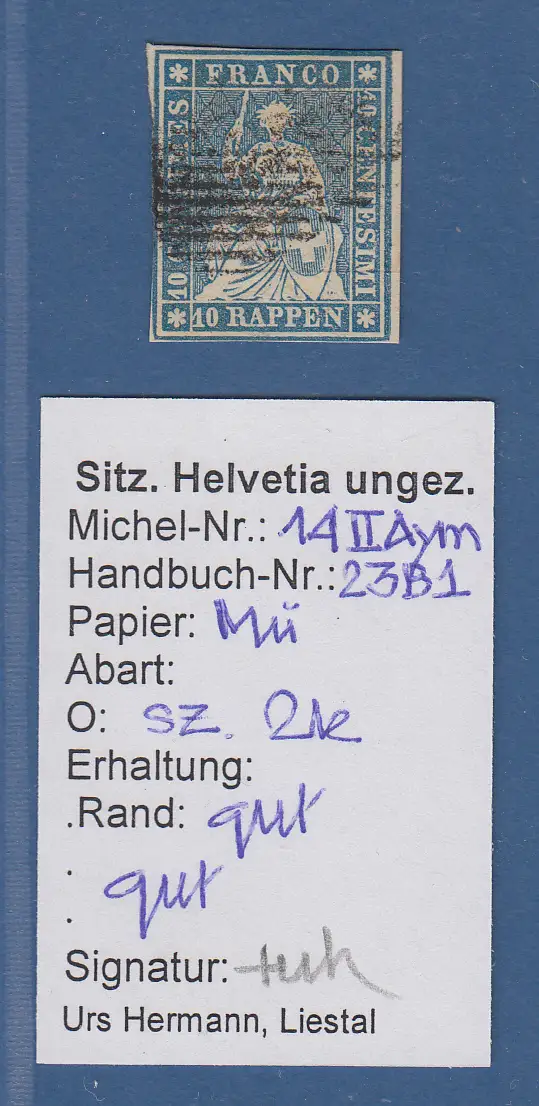 FRANCO
10 CENTESIMI
10 RAPPEN
Sitz. Helvetia ungez.
Michel-Nr.: 14 II Aym
Handbuch-Nr.: 23B1
Papier: Mü
Abart:
O: sz.
Erhaltung:
.Rand: gut
. gut
.
Signatur:
Urs Hermann, Liestal